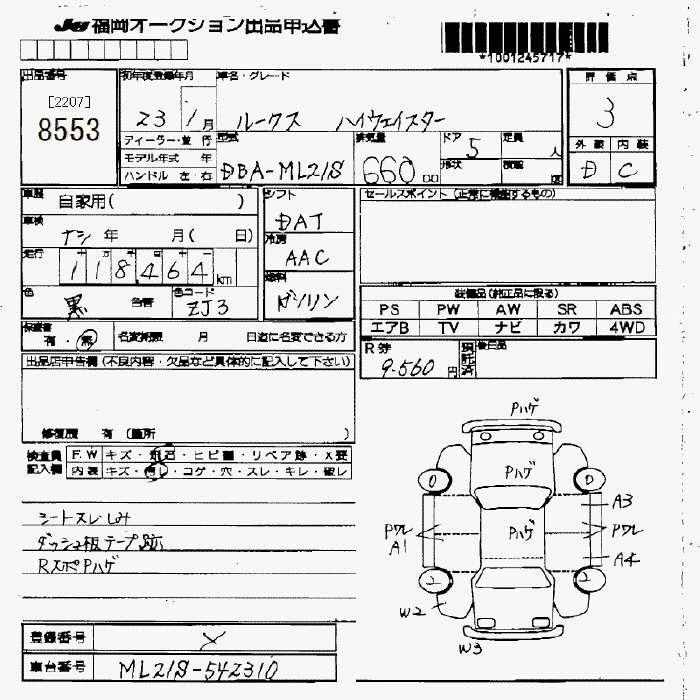 JU 福岡オークション出品申込書
*1001245717*
出品番号
[2207]
8553
初年度登録年月
23 1月
ディーラー・並行
モデル年式 年
ハンドル 左・右
車名・グレード
ルークス ハイウェイスター
型式
DBA-ML21S
排気量
660 cc
ドア
5
形状
定員
人
積載
評価点
3
外装 内装
D C
車歴
自家用( )
車検
ナシ 年 月( 日)
走行
118464 km
色
黒
色替
色コード
ZJ3
シフト
DAT
冷房
AAC
燃料
ガソリン
セールスポイント (正常に機能するもの)
装備品(純正品に限る)
PS PW AW SR ABS
エアB TV ナビ カワ 4WD
R券
9.560 円
後日品
保証書
有・無
名変期限 月 日迄に名変できる方
出品店申告欄(不良内容・欠品など具体的に記入して下さい)
修復歴 有 (箇所 )
検査員
記入欄
F.W キズ・飛石・ヒビ割・リペア跡・X要
内装 キズ・汚レ・コゲ・穴・スレ・キレ・破レ
シートスレしみ
ダッシュ板テープ跡
RスポPハゲ
登録番号
車台番号 ML21S-542310
Pハゲ
Pハゲ
Pハゲ
0 0
A3
Pワレ
A1
Pワレ
A4
2 2
W2
W3